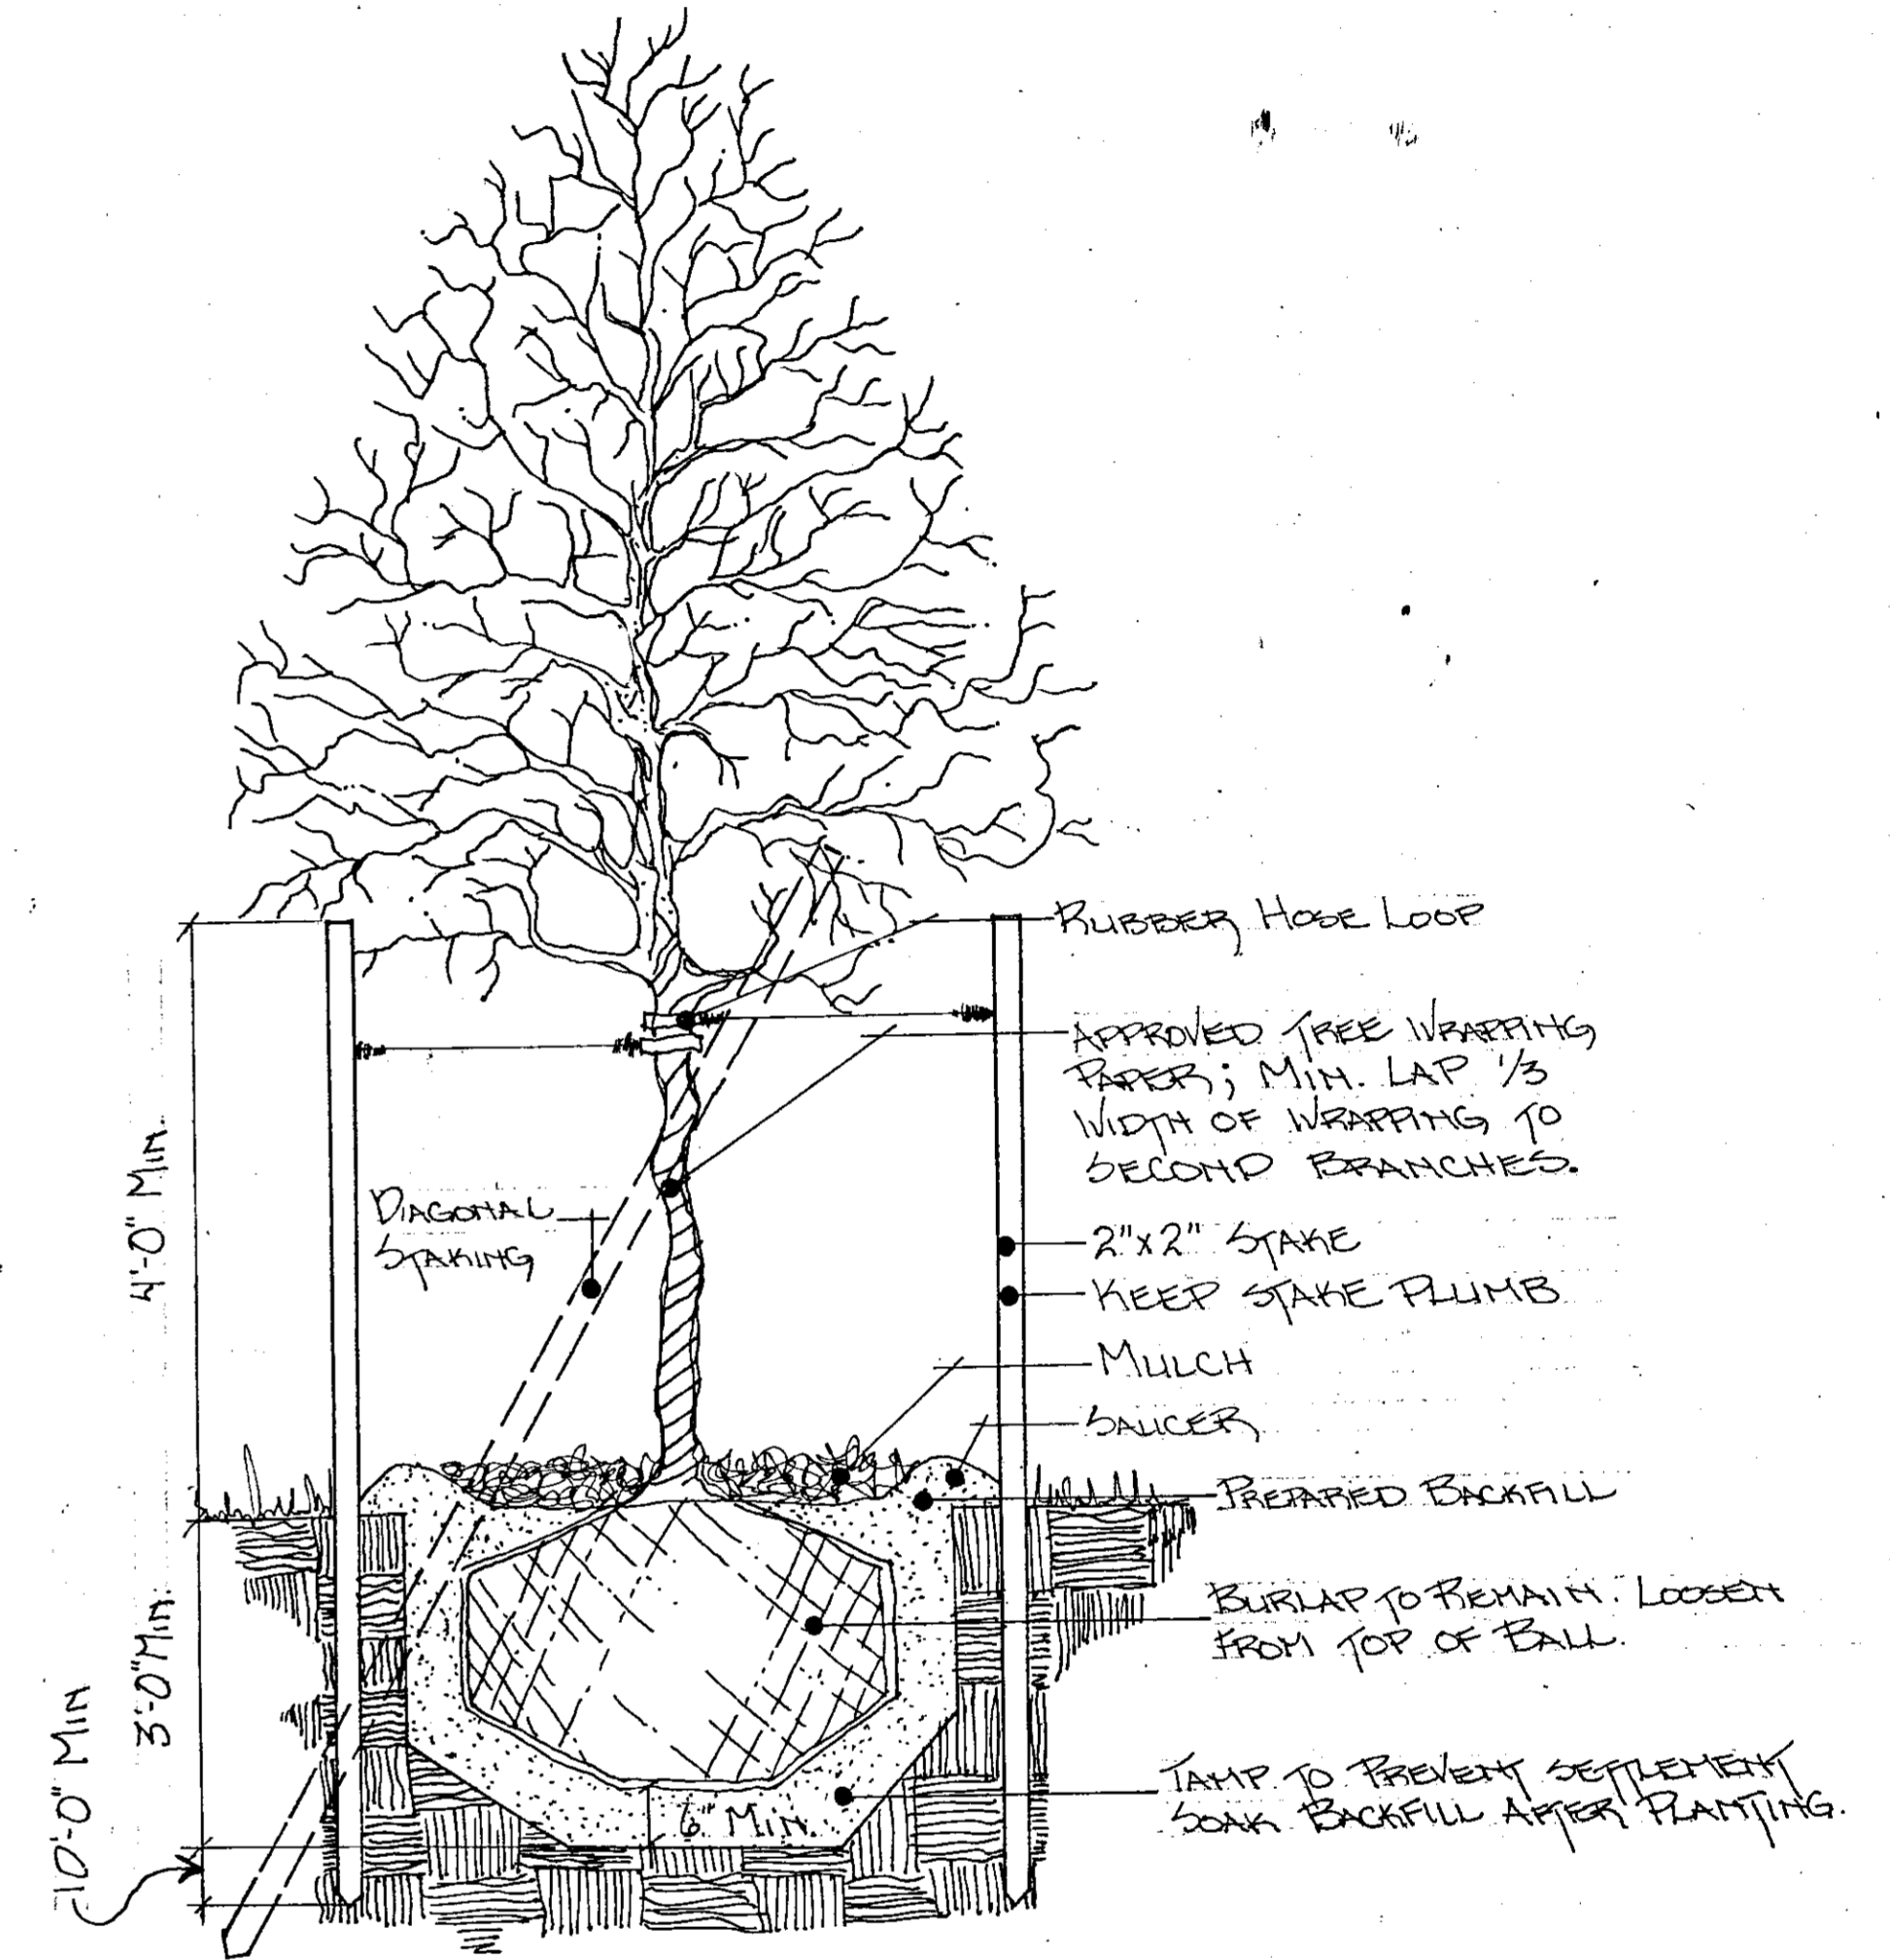 RUBBER HOSE LOOP
APPROVED TREE WRAPPING
PAPER; MIN. LAP 1/3
WIDTH OF WRAPPING TO
SECOND BRANCHES.
4'-0" MIN.
DIAGONAL
STAKING
2"x2" STAKE
KEEP STAKE PLUMB
MULCH
SAUCER
PREPARED BACKFILL
BURLAP TO REMAIN. LOOSEN
FROM TOP OF BALL.
3'-0" MIN.
10'-0" MIN
6" MIN.
TAMP TO PREVENT SETTLEMENT
SOAK BACKFILL AFTER PLANTING.